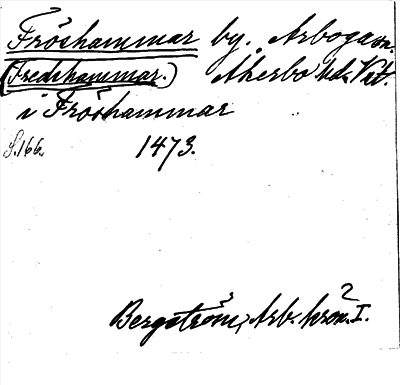 Fröshammar by. Arboga sn.
(Fredshammar.) Åkerbo hd. Vstl.
i Fröshammar
S. 166. 1473.
Bergström, Arb. krön. I.